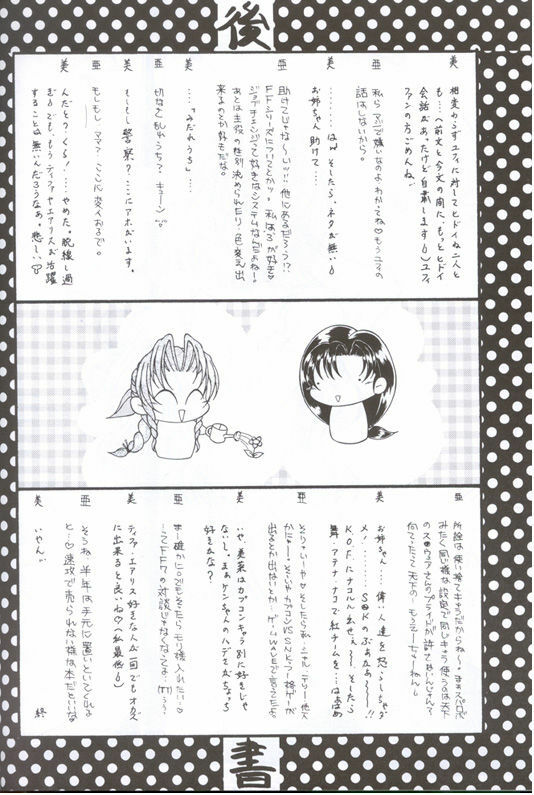 後
美 相変わらずユフィに対してヒドイね二人と
も…。(前文と今文の間に、もっとヒドイ
会話があったけど自粛します6)ユフィ
ファンの方ごめんね。
亜 私らマジで嫌いなのよわかってね♡もうユフィの
話はしないから。
美 ………はっ そしたら、ネタが無い6
お姉ちゃん助けて……。
亜 助けてじゃな〜いッ!!他にあるだろう!?
FFシリーズについてとかッ。私は5が好き♡
ジョブチェンジって好きなシステムなんだよねー。
あとは主役の性別決められたり!色変え出
来るのとか好もだな。
美 …、「みだれうち」……
亜 切なさ乱れうち?キューン。
美 もしもし警察?…ここにアホがいます。
亜 もしもしママ?ここに変人おるで。
美 んだとのくら!…やめた。脱線し過
ぎ6でも、もうティファやエアリスが活躍
することは無いんだろうなぁ。悲しい
亜 所詮は使い捨てキャラだからね〜。まぁスパロボ
みたく同じ様な設定で同じキャラ使うのは天下
のス●ウェアさんのプライドが許せないんじゃん?
何てったって天下の…もうえーちゅーねん6
美 お姉ちゃん…偉い人達を怒らしちゃダ
メ!……S●Kのぶぁかぁ〜〜!!
K.O.F.にナコルル出せぇ〜!そしたら
舞、アテナ、ナコで紅チームを…
亜
美 いや、美菜はカプコンキャラ別に好きじゃ
ないし。まぁケンちゃんのハデさがちょっち
好きかな?
亜 ま、確かに。
美 ティファ・エアリス好きな人が一回でもオカズ
に出来ると良いね♡(私最低6)
亜 そうね、半年は手元に置いといてくれる
と…♡速攻で売られない様な本だといいな
美 いやん。
終
書